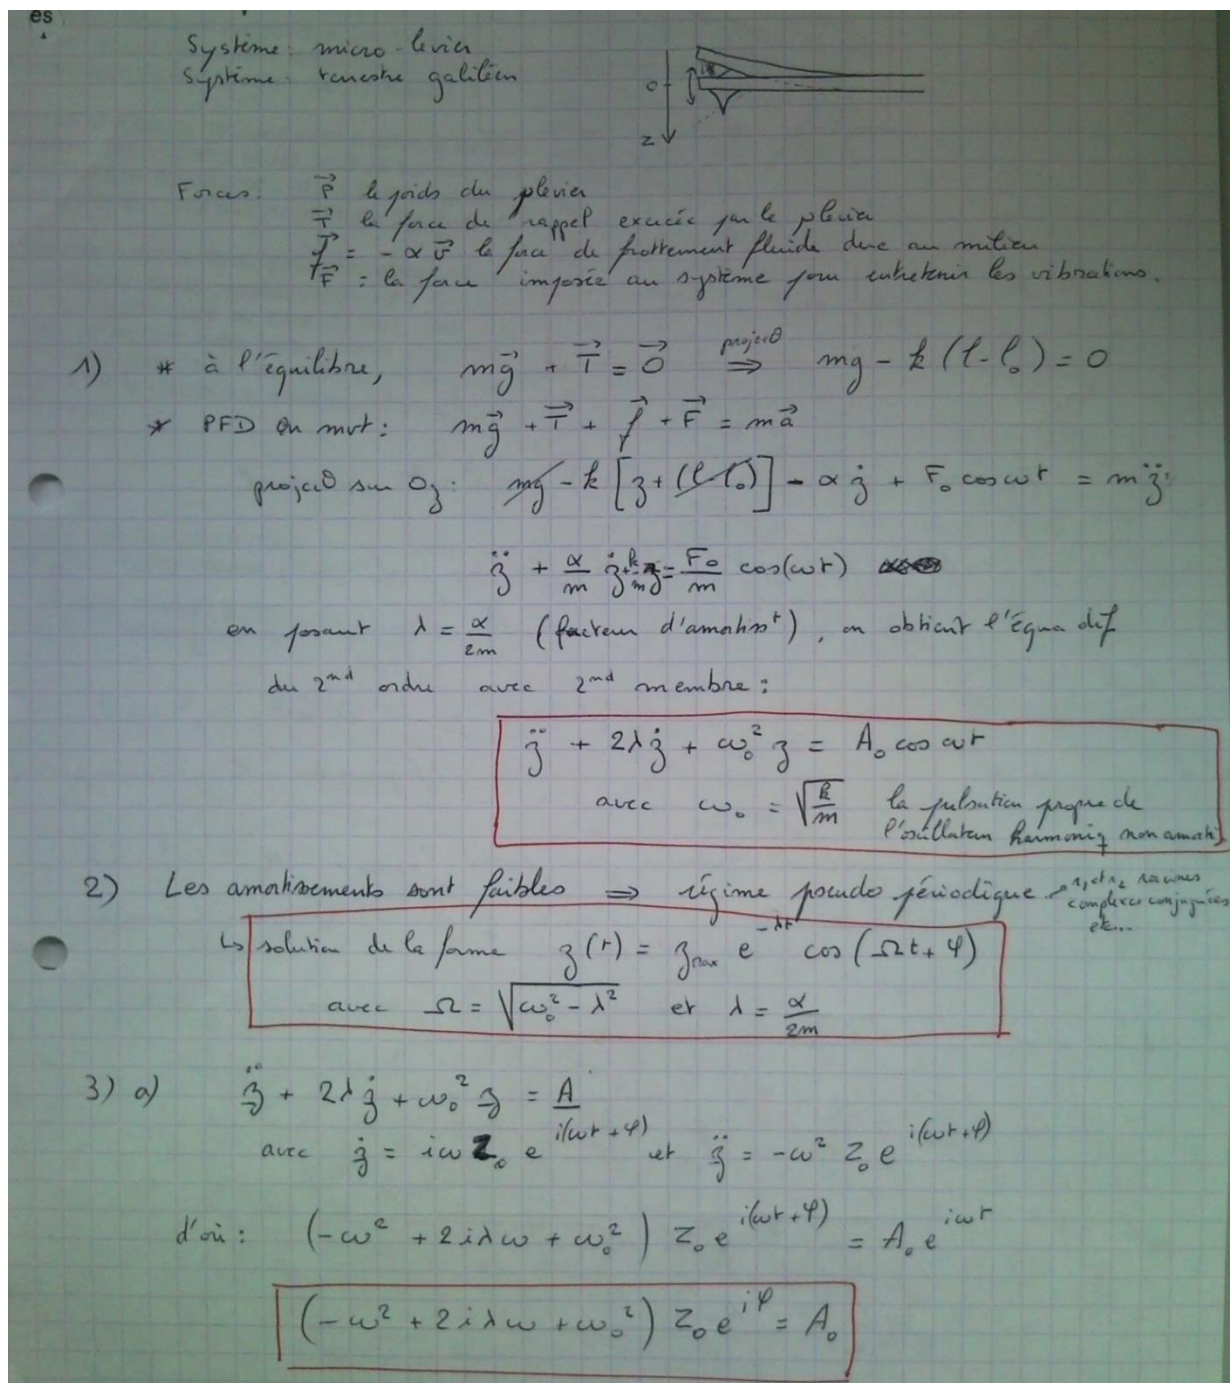 es
Système: micro-levier
Système: terrestre galiléen
O
z
Forces: P⃗ le poids du plevier
T⃗ la force de rappel exercée par le plevier
f⃗ = - α v⃗ la force de frottement fluide due au milieu
F⃗ = la force imposée au système pour entretenir les vibrations.
1) * à l'équilibre, mg⃗ + T⃗ = 0⃗ projecθ ⇒ mg - k (l - l₀) = 0
* PFD en mvt: mg⃗ + T⃗ + f⃗ + F⃗ = ma⃗
projecθ sur Oz: mg - k [z + (l - l₀)] - α ż + F₀ cos ωt = m z̈
z̈ + α/m ż + k/m z = F₀/m cos(ωt)
en posant λ = α/2m (facteur d'amortisst), on obtient l'équa dif
du 2nd ordre avec 2nd membre:
z̈ + 2λż + ω₀² z = A₀ cos ωt
avec ω₀ = √(k/m) la pulsation propre de
l'oscillateur harmoniq non amorti
2) Les amortissements sont faibles ⇒ régime pseudo périodique r₁ et r₂ racines
complexes conjuguées
etc...
↳ solution de la forme z(t) = zmax e^(-λt) cos (Ωt + φ)
avec Ω = √(ω₀² - λ²) et λ = α/2m
3) a) z̈ + 2λż + ω₀² z = A
avec ż = iω Z₀ e^(i(ωt + φ)) et z̈ = -ω² Z₀ e^(i(ωt + φ))
d'où: (-ω² + 2iλω + ω₀²) Z₀ e^(i(ωt + φ)) = A₀ e^(iωt)
(-ω² + 2iλω + ω₀²) Z₀ e^(iφ) = A₀